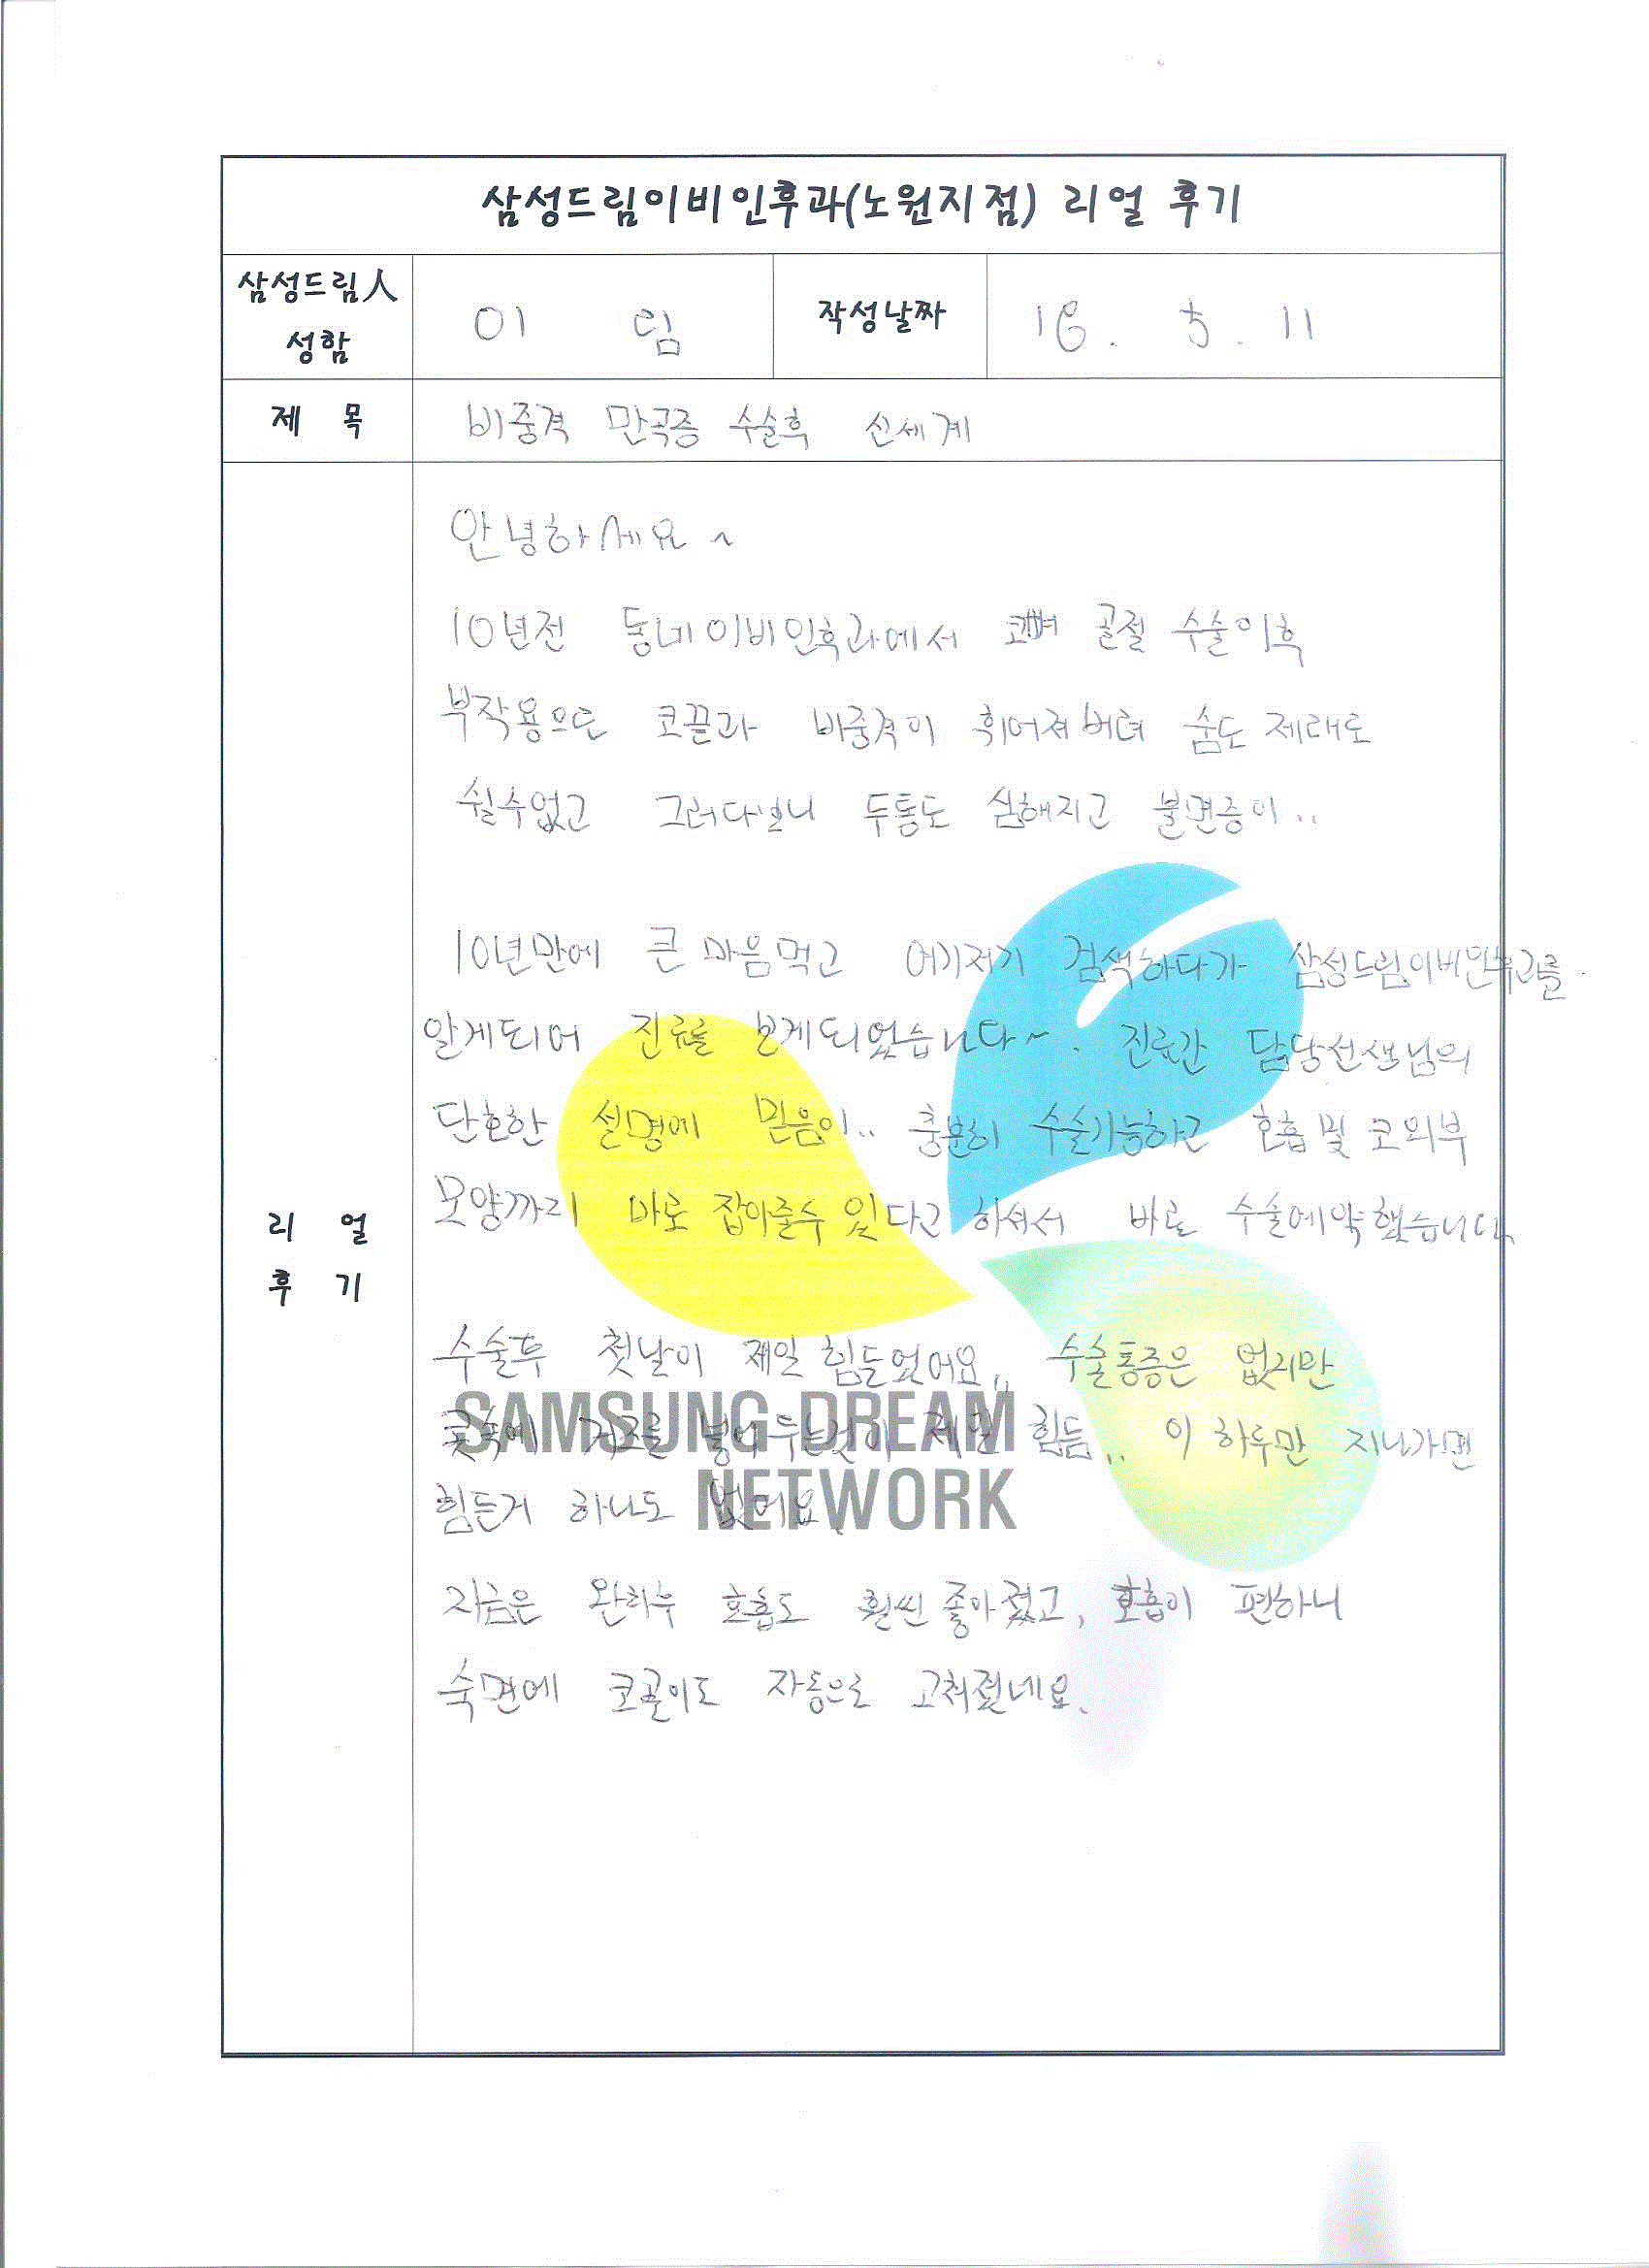 삼성드림이비인후과(노원지점) 리얼 후기
삼성드림人
성함
이 림
작성날짜
16. 5. 11
제 목
비중격 만곡증 수술후 신세계
안녕하세요~
10년전 동네이비인후과에서 코뼈 골절 수술이후
부작용으로 코끝과 비중격이 휘어져버려 숨도 제대로
쉴수없고 그러다보니 두통도 심해지고 불면증이..
10년만에 큰 마음먹고 여기저기 검색하다가 삼성드림이비인후과를
알게되어 진료를 보게되었습니다~. 진료간 담당선생님의
단호한 설명에 믿음이.. 충분히 수술가능하고 호흡 및 코외부
모양까지 바로 잡아줄수 있다고 하셔서 바로 수술예약했습니다.
리 얼
후 기
수술후 첫날이 제일 힘들었어요.. 수술통증은 없지만
콧속에 거즈를 넣어두는것이 제일 힘듬.. 이 하루만 지나가면
힘든거 하나도 없어요.
지금은 완하후 호흡도 훨씬 좋아졌고, 호흡이 편하니
숙면에 코골이도 자동으로 고쳐졌네요.
SAMSUNG DREAM
NETWORK